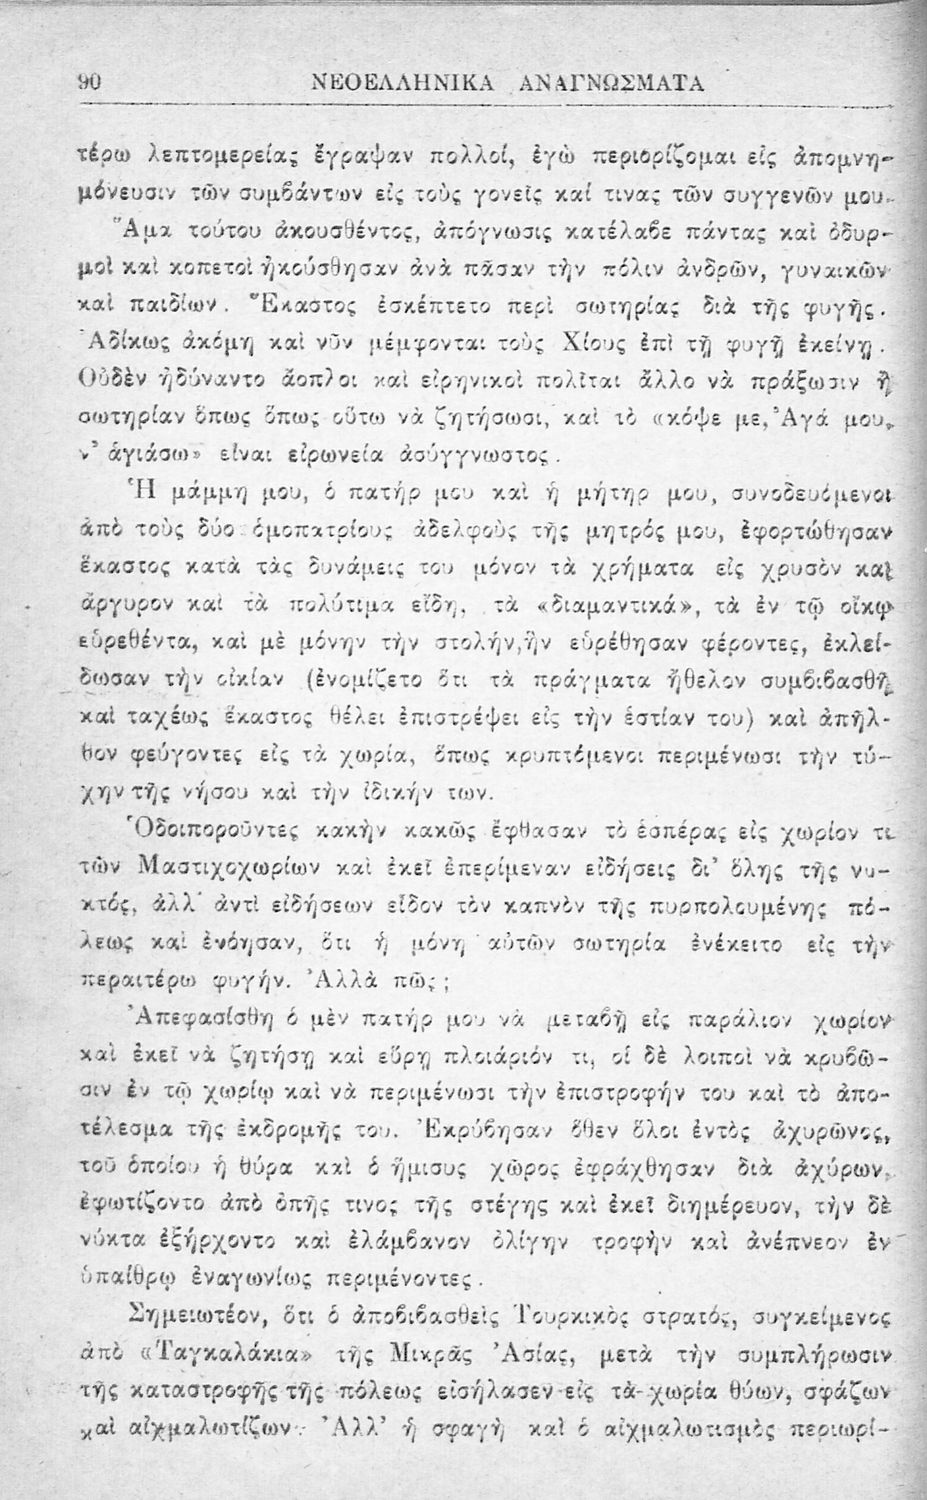 90 ΝΕΟΕΛΛΗΝΙΚΑ ΑΝΑΓΝΩΣΜΑΤΑ
τέρω λεπτομερείας ἔγραψαν πολλοί, ἐγὼ περιορίζομαι εἰς ἀπομνη-
μόνευσιν τῶν συμβάντων εἰς τοὺς γονεῖς καί τινας τῶν συγγενῶν μου.
Ἅμα τούτου ἀκουσθέντος, ἀπόγνωσις κατέλαβε πάντας καὶ ὀδυρ-
μοὶ καὶ κοπετοὶ ἠκούσθησαν ἀνὰ πᾶσαν τὴν πόλιν ἀνδρῶν, γυναικῶν
καὶ παιδίων. Ἕκαστος ἐσκέπτετο περὶ σωτηρίας διὰ τῆς φυγῆς.
Ἀδίκως ἀκόμη καὶ νῦν μέμφονται τοὺς Χίους ἐπὶ τῇ φυγῇ ἐκείνῃ.
Οὐδὲν ἠδύναντο ἄοπλοι καὶ εἰρηνικοὶ πολῖται ἄλλο νὰ πράξωσιν ἢ
σωτηρίαν ὅπως ὅπως οὕτω νὰ ζητήσωσι, καὶ τὸ «κόψε με, Ἀγά μου,
ν' ἁγιάσω» εἶναι εἰρωνεία ἀσύγγνωστος.
Ἡ μάμμη μου, ὁ πατήρ μου καὶ ἡ μήτηρ μου, συνοδευόμενοι
ἀπὸ τοὺς δύο ὁμοπατρίους ἀδελφοὺς τῆς μητρός μου, ἐφορτώθησαν
ἕκαστος κατὰ τὰς δυνάμεις του μόνον τὰ χρήματα εἰς χρυσὸν καὶ
ἄργυρον καὶ τὰ πολύτιμα εἴδη, τὰ «διαμαντικά», τὰ ἐν τῷ οἴκῳ
εὑρεθέντα, καὶ μὲ μόνην τὴν στολήν, ἣν εὑρέθησαν φέροντες, ἐκλεί-
δωσαν τὴν οἰκίαν (ἐνομίζετο ὅτι τὰ πράγματα ἤθελον συμβιβασθῆ
καὶ ταχέως ἕκαστος θέλει ἐπιστρέψει εἰς τὴν ἑστίαν του) καὶ ἀπῆλ-
θον φεύγοντες εἰς τὰ χωρία, ὅπως κρυπτόμενοι περιμένωσι τὴν τύ-
χην τῆς νήσου καὶ τὴν ἰδικήν των.
Ὁδοιποροῦντες κακὴν κακῶς ἔφθασαν τὸ ἑσπέρας εἰς χωρίον τι
τῶν Μαστιχοχωρίων καὶ ἐκεῖ ἐπερίμεναν εἰδήσεις δι' ὅλης τῆς νυ-
κτός, ἀλλ' ἀντὶ εἰδήσεων εἶδον τὸν καπνὸν τῆς πυρπολουμένης πό-
λεως καὶ ἐνόησαν, ὅτι ἡ μόνη αὐτῶν σωτηρία ἐνέκειτο εἰς τὴν
περαιτέρω φυγήν. Ἀλλὰ πῶς;
Ἀπεφασίσθη ὁ μὲν πατήρ μου νὰ μεταβῇ εἰς παράλιον χωρίον
καὶ ἐκεῖ νὰ ζητήσῃ καὶ εὕρῃ πλοιάριόν τι, οἱ δὲ λοιποὶ νὰ κρυβῶ-
σιν ἐν τῷ χωρίῳ καὶ νὰ περιμένωσι τὴν ἐπιστροφήν του καὶ τὸ ἀπο-
τέλεσμα τῆς ἐκδρομῆς του. Ἐκρύβησαν ὅθεν ὅλοι ἐντὸς ἀχυρῶνος,
τοῦ ὁποίου ἡ θύρα καὶ ὁ ἥμισυς χῶρος ἐφράχθησαν διὰ ἀχύρων,
ἐφωτίζοντο ἀπὸ ὀπῆς τινος τῆς στέγης καὶ ἐκεῖ διημέρευον, τὴν δὲ
νύκτα ἐξήρχοντο καὶ ἐλάμβανον ὀλίγην τροφὴν καὶ ἀνέπνεον ἐν
ὑπαίθρῳ ἐναγωνίως περιμένοντες.
Σημειωτέον, ὅτι ὁ ἀποβιβασθεὶς Τουρκικὸς στρατός, συγκείμενος
ἀπὸ «Ταγκαλάκια» τῆς Μικρᾶς Ἀσίας, μετὰ τὴν συμπλήρωσιν
τῆς καταστροφῆς τῆς πόλεως εἰσήλασεν εἰς τὰ χωρία θύων, σφάζων
καὶ αἰχμαλωτίζων. Ἀλλ' ἡ σφαγὴ καὶ ὁ αἰχμαλωτισμὸς περιωρί-